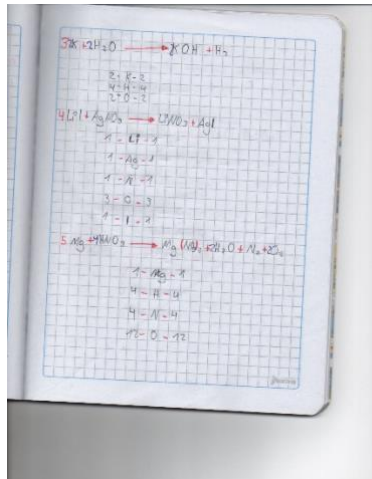 3 K + 2H₂O → KOH + H₂
2 - K - 2
4 - H - 4
2 - O - 2
4 LiI + AgNO₃ → LiNO₃ + AgI
1 - Li - 1
1 - Ag - 1
1 - N - 1
3 - O - 3
1 - I - 1
5 Mg + 4HNO₃ → Mg (NO₃)₂ + 2H₂O + N₂ + 2O₂
1 - Mg - 1
4 - H - 4
4 - N - 4
12 - O - 12